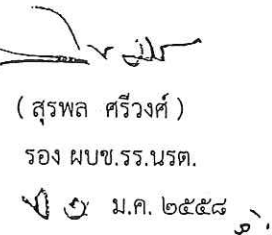 ( สุรพล ศรีวงศ์ )
รอง ผบช.รร.นรต.
ม.ค. ๒๕๕๘